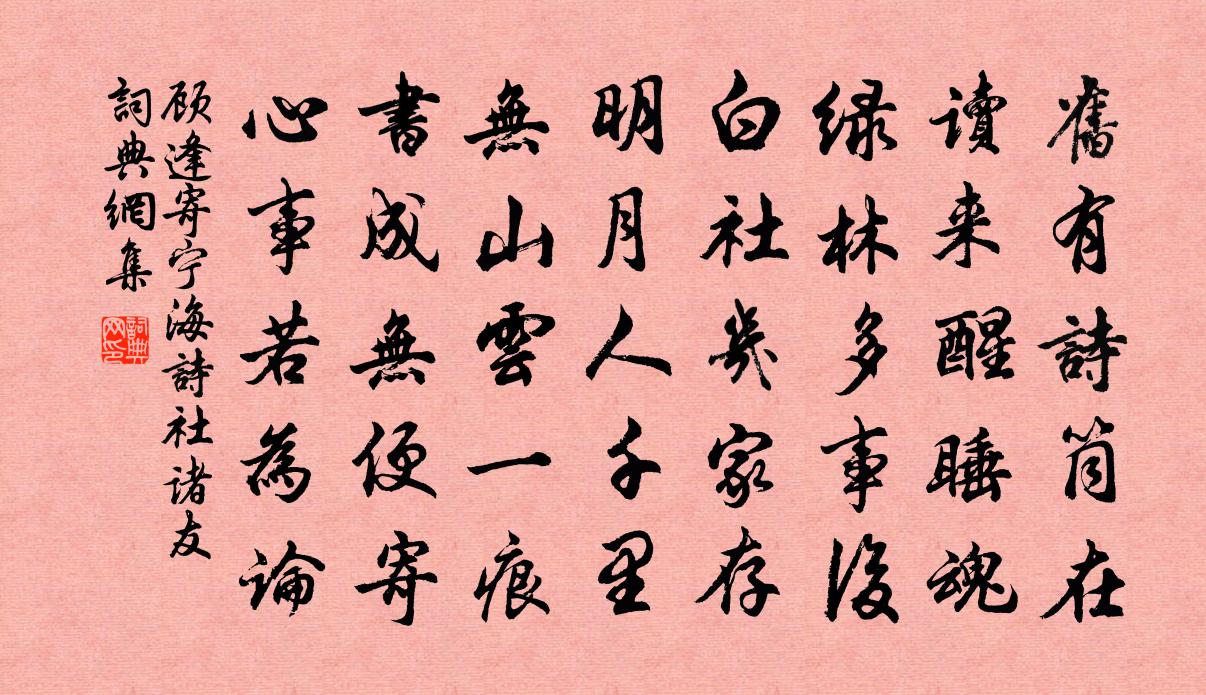 舊有詩筒在
讀来醒睡魂
緑林多事後
白社幾家存
明月人千里
無山雲一痕
書成無便寄
心事若為論
顾逢寄宁海詩社诸友
詞典網集
詞典网印